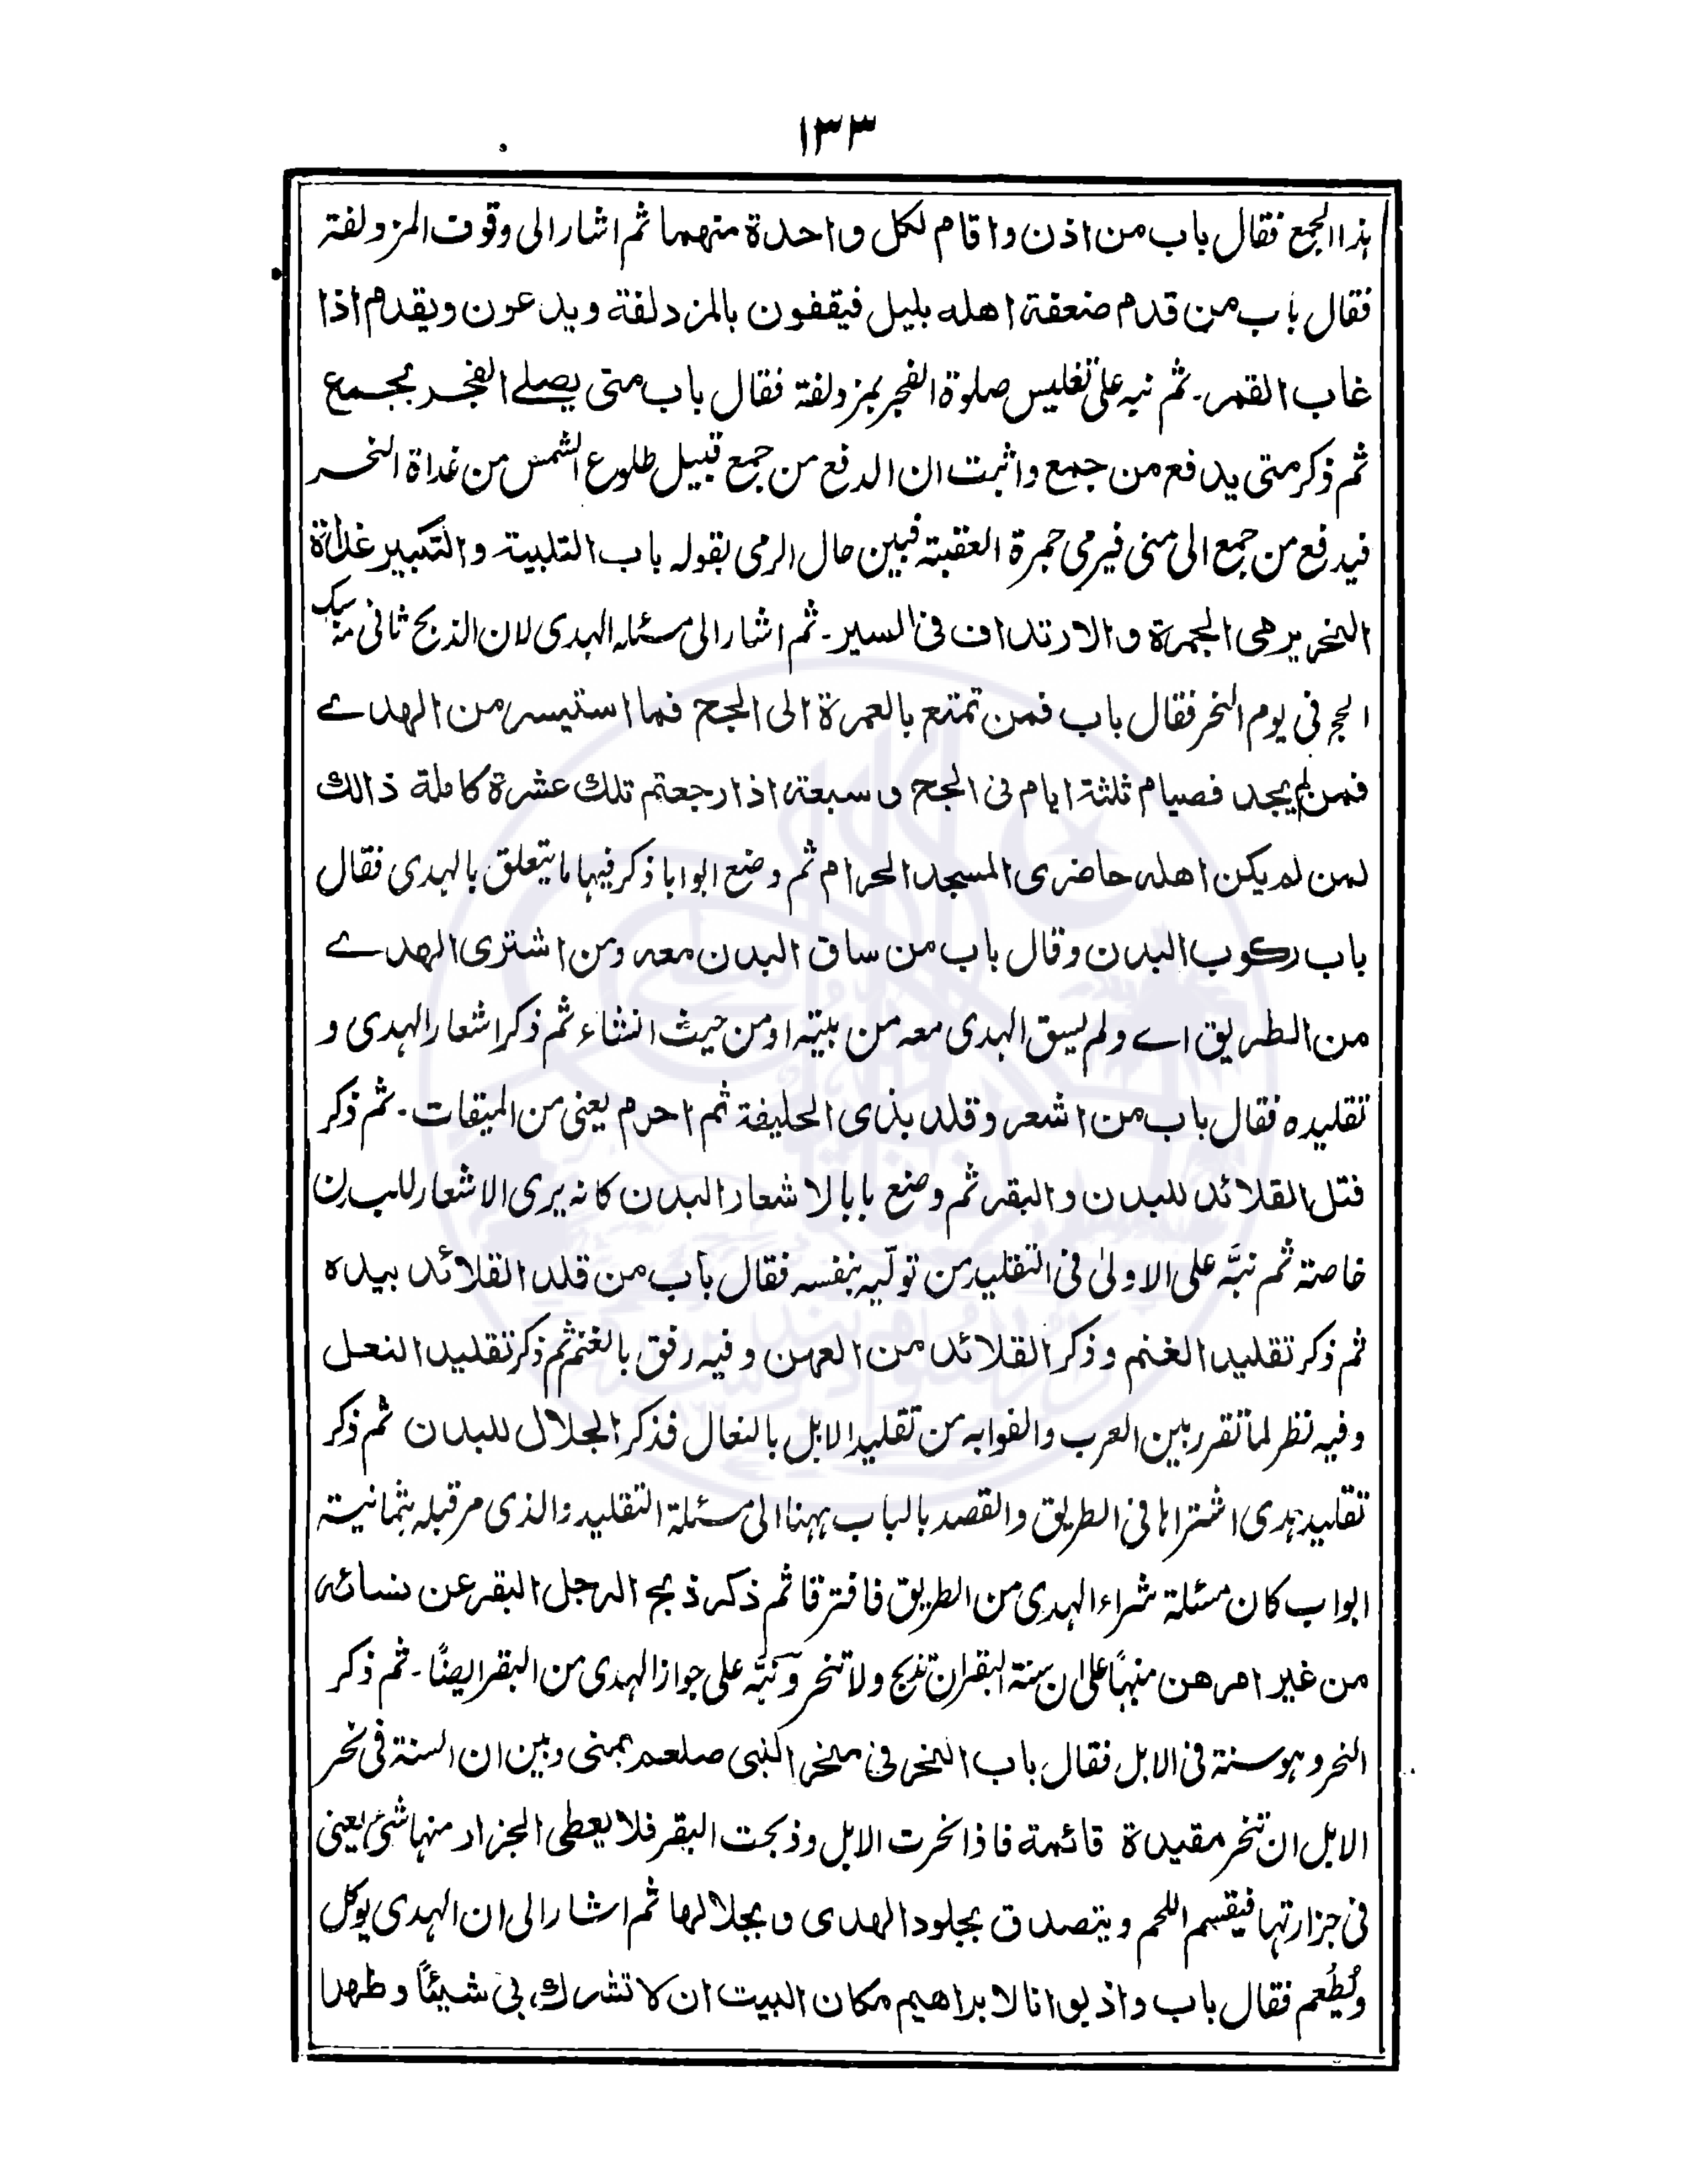 ١٣٣
هذا الجمع فقال باب من اذن واقام لكل واحدة منهما ثم اشار الى وقوف المزدلفة
فقال باب من قدم ضعفة اهله بليل فيقفون بالمزدلفة ويدعون ويقدم اذا
غاب القمر۔ ثم نبه على تغليس صلوة الفجر بمزدلفة فقال باب متى يصلے الفجر بجمع
ثم ذكر متى يدفع من جمع واثبت ان الدفع من جمع قبيل طلوع الشمس من غداة النحر
فيدفع من جمع الى منى فيرمى جمرة العقبة فبين حال الرمى بقوله باب التلبية والتكبير غداة
النحر يرمى الجمرة والارتداف فى السير۔ ثم اشار الى مسئله الهدى لان الذبح ثانى مناسك
الحج فى يوم النحر فقال باب فمن تمتع بالعمرة الى الحج فما استيسر من الهدے
فمن لم يجد فصيام ثلثة ايام فى الحج وسبعة اذا رجعتم تلك عشرة كاملة ذالك
لمن لم يكن اهله حاضرى المسجد الحرام ثم وضع ابوابا ذكر فيها ما يتعلق بالهدى فقال
باب ركوب البدن وقال باب من ساق البدن معه ومن اشترى الهدے
من الطريق اے ولم يسق الهدى معه من بيته او من حيث انشاء ثم ذكر اشعار الهدى و
تقليده فقال باب من اشعر وقلد بذى الحليفة ثم احرم يعنى من الميقات۔ ثم ذكر
فتل القلائد للبدن والبقر ثم وضع بابا لاشعار البدن كانه يرى الاشعار للبدن
خاصة ثم نبَّه على الاولىٰ فى التقليد من تولّيه بنفسه فقال باب من قلد القلائد بيده
ثم ذكر تقليد الغنم وذكر القلائد من العهن وفيه رفق بالغنم ثم ذكر تقليد النعل
وفيه نظر لما تقرر بين العرب والفوا به من تقليد الابل بالنعال فذكر الجلال للبدن ثم ذكر
تقليد هدى اشتراها فى الطريق والقصد بالباب ههنا الى مسئلة التقليد والذى مر قبله بثمانية
ابواب كان مسئلة شراء الهدى من الطريق فافترقا ثم ذكر ذبح الرجل البقر عن نسائه
من غير امرهن منبهًا على ان سنة البقران تذبح ولا تنحر ونبَّه على جواز الهدى من البقر ايضًا۔ ثم ذكر
النحر وهو سنة فى الابل فقال باب النحر فى منحر النبى صلعم بمنى وبين ان السنة فى نحر
الابل ان تنحر مقيدة قائمة فاذا نحرت الابل وذبحت البقر فلا يعطى الجزار منها شئ يعنى
فى جزارتها فيقسم اللحم ويتصدق بجلود الهدى وبجلالها ثم اشار الى ان الهدى يوكل
ويُطعم فقال باب واذ بوانا لابراهيم مكان البيت ان لا تشرك بى شيئًا وطهرا